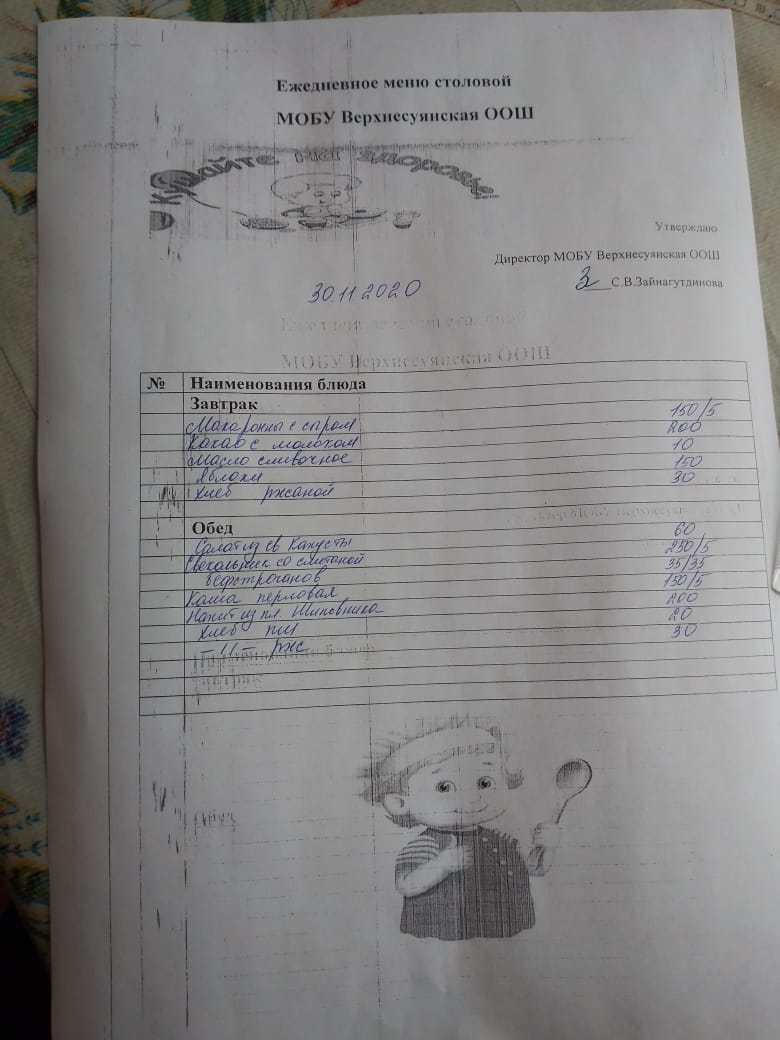 Ежедневное меню столовой
МОБУ Верхнесуянская ООШ
Кушайте на здоровье!
Утверждаю
Директор МОБУ Верхнесуянская ООШ
С.В.Зайнагутдинова
30.11 2020
Ежедневное меню столовой
МОБУ Верхнесуянская ООШ
№ Наименования блюда
Завтрак
Макароны с сыром 150/5
Какао с молоком 200
Масло сливочное 10
Яблоки 150
Хлеб ржаной 30
Обед
Салат из св капусты 60
Свекольник со сметаной 250/5
Бефстроганов 35/35
Каша перловая 150/5
Напит из пл. Шиповника 200
Хлеб пш 20
-11- ржс 30
Наименования блюда
Завтрак
Обед